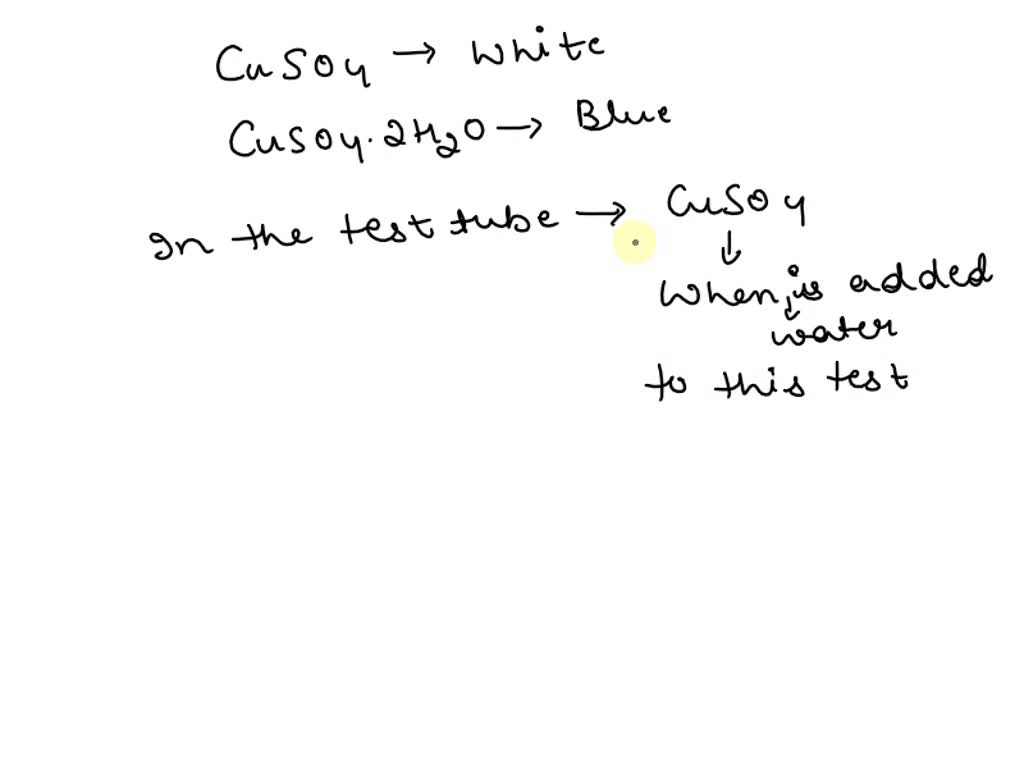 CuSO4 → White
CuSO4.2H2O → Blue
In the test tube → CuSO4
↓
When is added
↓
water
to this test